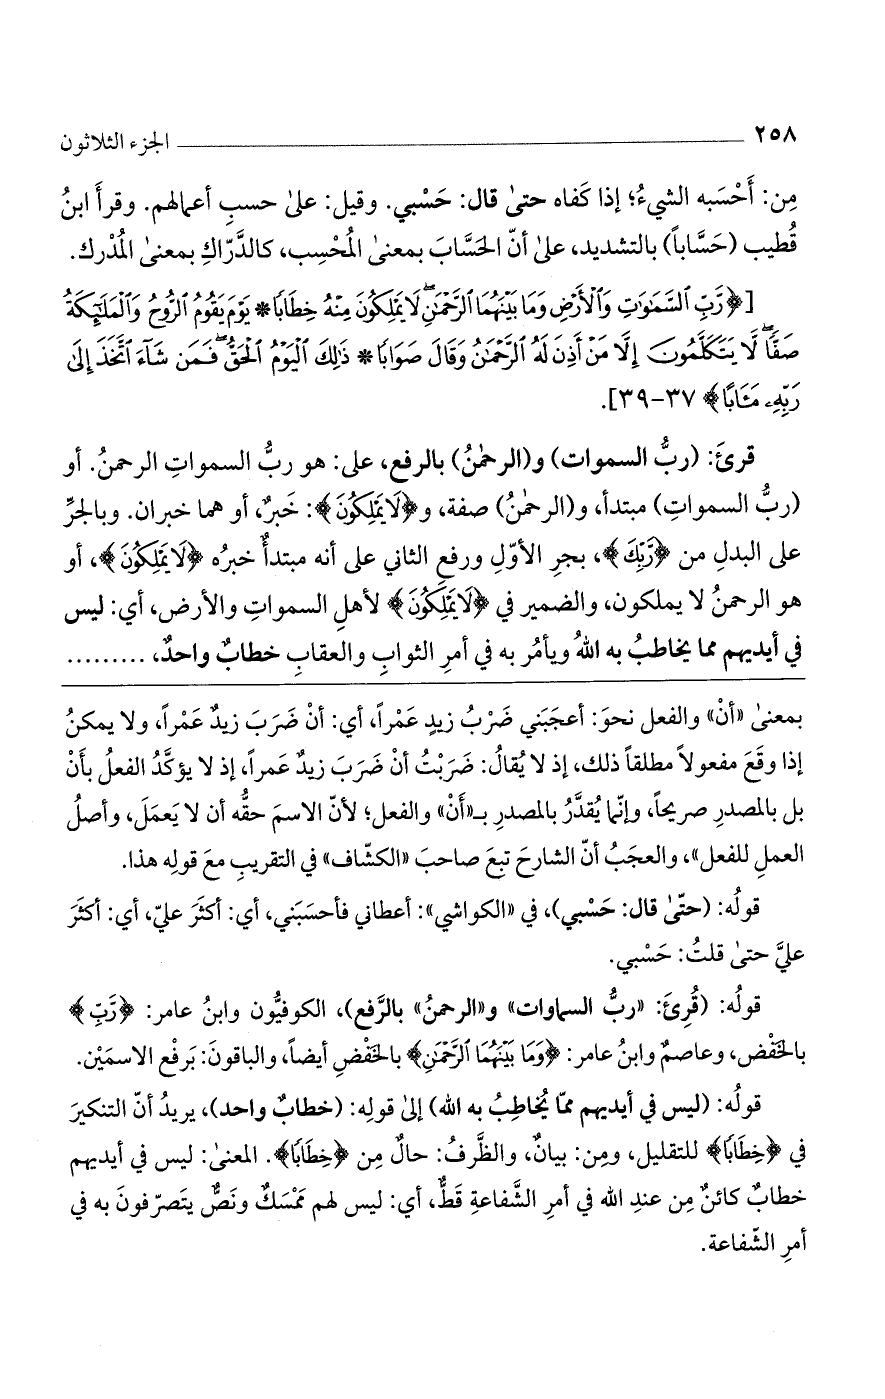 ٢٥٨ الجزء الثلاثون
مِن: أَحْسَبه الشيءُ؛ إذا كَفاه حتىٰ قال: حَسْبي. وقيل: علىٰ حسبِ أعمالهم. وقرأَ ابنُ
قُطيب (حَسَّاباً) بالتشديد، علىٰ أنّ الحَسَّابَ بمعنىٰ المُحْسِب، كالدَّرّاكِ بمعنىٰ المُدْرك.
[﴿رَّبِّ السَّمَٰوَٰتِ وَالْأَرْضِ وَمَا بَيْنَهُمَا الرَّحْمَٰنِ ۖ لَا يَمْلِكُونَ مِنْهُ خِطَابًا * يَوْمَ يَقُومُ الرُّوحُ وَالْمَلَٰٓئِكَةُ
صَفًّا ۖ لَّا يَتَكَلَّمُونَ إِلَّا مَنْ أَذِنَ لَهُ الرَّحْمَٰنُ وَقَالَ صَوَابًا * ذَٰلِكَ الْيَوْمُ الْحَقُّ ۖ فَمَن شَآءَ اتَّخَذَ إِلَىٰ
رَبِّهِۦ مَـَٔابًا﴾ ٣٧-٣٩].
قرئَ: (ربُّ السموات) و(الرحمٰنُ) بالرفع، على: هو ربُّ السمواتِ الرحمنُ. أو
(ربُّ السمواتِ) مبتدأ، و(الرحمٰنُ) صفة، و﴿لَا يَمْلِكُونَ﴾: خَبرٌ، أو هما خبران. وبالجرِّ
على البدلِ من ﴿رَّبِّكَ﴾، بجرِ الأوّلِ ورفعِ الثاني على أنه مبتدأٌ خبرُه ﴿لَا يَمْلِكُونَ﴾، أو
هو الرحمنُ لا يملكون، والضمير في ﴿لَا يَمْلِكُونَ﴾ لأهلِ السمواتِ والأرض، أي: ليس
في أيديهم مما يخاطبُ به اللهُ ويأمُر به في أمرِ الثوابِ والعقابِ خطابٌ واحدٌ، .........
بمعنىٰ «أنْ» والفعل نحوَ: أعجَبَني ضَرْبُ زيدٍ عَمْراً، أي: أنْ ضَرَبَ زيدٌ عَمْراً، ولا يمكنُ
إذا وقَعَ مفعولاً مطلقاً ذلك، إذ لا يُقالُ: ضَرَبْتُ أنْ ضَرَبَ زيدٌ عَمراً، إذ لا يؤكَّدُ الفعلُ بأَنْ
بل بالمصدرِ صريحاً، وإنّما يُقدَّرُ بالمصدرِ بـ«أَنْ» والفعل؛ لأنّ الاسمَ حقُّه أن لا يَعمَلَ، وأصلُ
العملِ للفعل»، والعجَبُ أنّ الشارحَ تبعَ صاحبَ «الكشّاف» في التقريبِ معَ قولِه هذا.
قولُه: (حتّىٰ قال: حَسْبي)، في «الكواشي»: أعطاني فأحسَبَني، أي: أكثَرَ عليّ، أي: أكثَرَ
عليَّ حتىٰ قلتُ: حَسْبي.
قولُه: (قُرِئَ: «ربُّ السماوات» و«الرحمنُ» بالرَّفع)، الكوفيُّون وابنُ عامر: ﴿رَّبِّ﴾
بالخَفْض، وعاصمٌ وابنُ عامر: ﴿وَمَا بَيْنَهُمَا الرَّحْمَٰنِ﴾ بالخَفْضِ أيضاً، والباقونَ: بَرفْعِ الاسمَيْن.
قولُه: (ليس في أيديهم ممّا يُخاطِبُ به الله) إلىٰ قولِه: (خطابٌ واحد)، يريدُ أنّ التنكيرَ
في ﴿خِطَابًا﴾ للتقليل، ومِن: بيانٌ، والظَّرفُ: حالٌ مِن ﴿خِطَابًا﴾. المعنىٰ: ليس في أيديهم
خطابٌ كائنٌ مِن عندِ الله في أمرِ الشَّفاعةِ قَطُّ، أي: ليس لهم مَمْسَكٌ ونَصٌّ يتَصرّفونَ به في
أمرِ الشّفاعة.